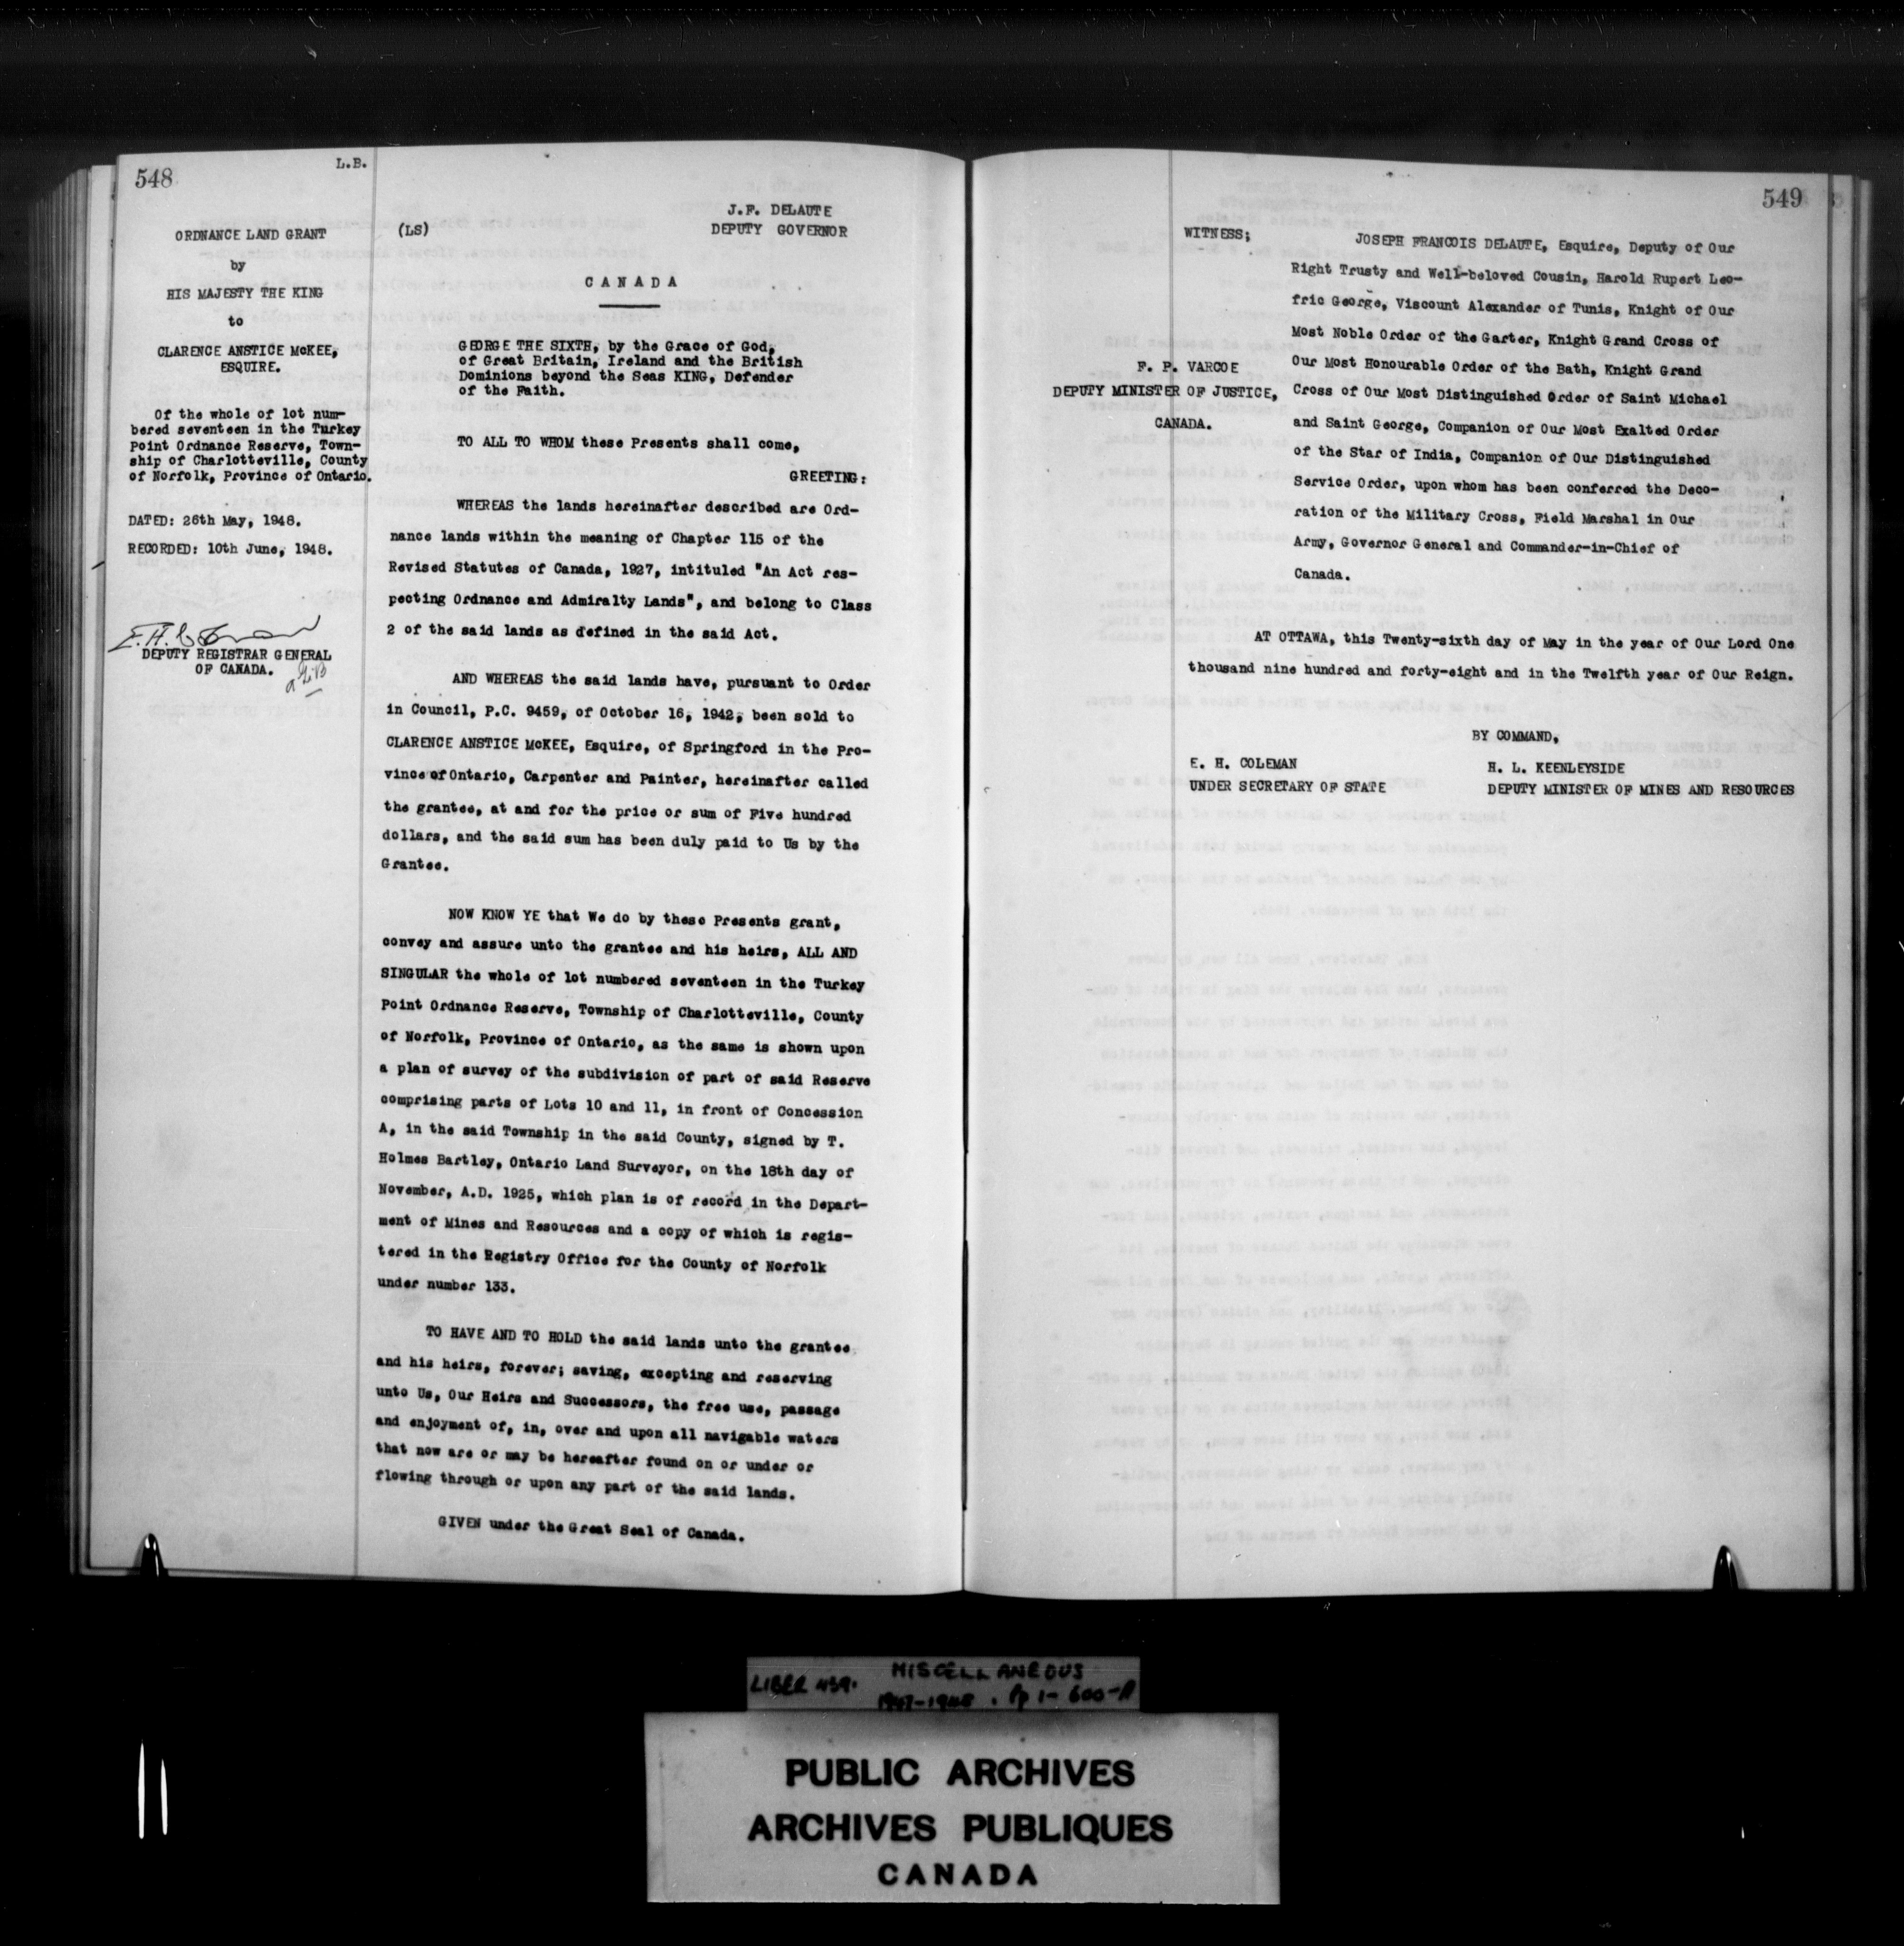 548
L.B.
ORDNANCE LAND GRANT
by
HIS MAJESTY THE KING
to
CLARENCE ANSTICE McKEE,
ESQUIRE.
Of the whole of lot num-
bered seventeen in the Turkey
Point Ordnance Reserve, Town-
ship of Charlotteville, County
of Norfolk, Province of Ontario.
DATED: 26th May, 1948.
RECORDED: 10th June, 1948.
DEPUTY REGISTRAR GENERAL
OF CANADA.
(LS)
J.F. DELAUTE
DEPUTY GOVERNOR
CANADA
GEORGE THE SIXTH, by the Grace of God,
of Great Britain, Ireland and the British
Dominions beyond the Seas KING, Defender
of the Faith.
TO ALL TO WHOM these Presents shall come,
GREETING:
WHEREAS the lands hereinafter described are Ord-
nance lands within the meaning of Chapter 115 of the
Revised Statutes of Canada, 1927, intituled "An Act res-
pecting Ordnance and Admiralty Lands", and belong to Class
2 of the said lands as defined in the said Act.
AND WHEREAS the said lands have, pursuant to Order
in Council, P.C. 9459, of October 16, 1942, been sold to
CLARENCE ANSTICE McKEE, Esquire, of Springford in the Pro-
vince of Ontario, Carpenter and Painter, hereinafter called
the grantee, at and for the price or sum of Five hundred
dollars, and the said sum has been duly paid to Us by the
Grantee.
NOW KNOW YE that We do by these Presents grant,
convey and assure unto the grantee and his heirs, ALL AND
SINGULAR the whole of lot numbered seventeen in the Turkey
Point Ordnance Reserve, Township of Charlotteville, County
of Norfolk, Province of Ontario, as the same is shown upon
a plan of survey of the subdivision of part of said Reserve
comprising parts of Lots 10 and 11, in front of Concession
A, in the said Township in the said County, signed by T.
Holmes Bartley, Ontario Land Surveyor, on the 18th day of
November, A.D. 1925, which plan is of record in the Depart-
ment of Mines and Resources and a copy of which is regis-
tered in the Registry Office for the County of Norfolk
under number 133.
TO HAVE AND TO HOLD the said lands unto the grantee
and his heirs, forever; saving, excepting and reserving
unto Us, Our Heirs and Successors, the free use, passage
and enjoyment of, in, over and upon all navigable waters
that now are or may be hereafter found on or under or
flowing through or upon any part of the said lands.
GIVEN under the Great Seal of Canada.
549
WITNESS;
F. P. VARCOE
DEPUTY MINISTER OF JUSTICE,
CANADA.
JOSEPH FRANCOIS DELAUTE, Esquire, Deputy of Our
Right Trusty and Well-beloved Cousin, Harold Rupert Leo-
fric George, Viscount Alexander of Tunis, Knight of Our
Most Noble Order of the Garter, Knight Grand Cross of
Our Most Honourable Order of the Bath, Knight Grand
Cross of Our Most Distinguished Order of Saint Michael
and Saint George, Companion of Our Most Exalted Order
of the Star of India, Companion of Our Distinguished
Service Order, upon whom has been conferred the Deco-
ration of the Military Cross, Field Marshal in Our
Army, Governor General and Commander-in-Chief of
Canada.
AT OTTAWA, this Twenty-sixth day of May in the year of Our Lord One
thousand nine hundred and forty-eight and in the Twelfth year of Our Reign.
BY COMMAND,
E. H. COLEMAN
UNDER SECRETARY OF STATE
H. L. KEENLEYSIDE
DEPUTY MINISTER OF MINES AND RESOURCES
LIBER 439. MISCELLANEOUS
1947-1948. Pp 1-600-A
PUBLIC ARCHIVES
ARCHIVES PUBLIQUES
CANADA